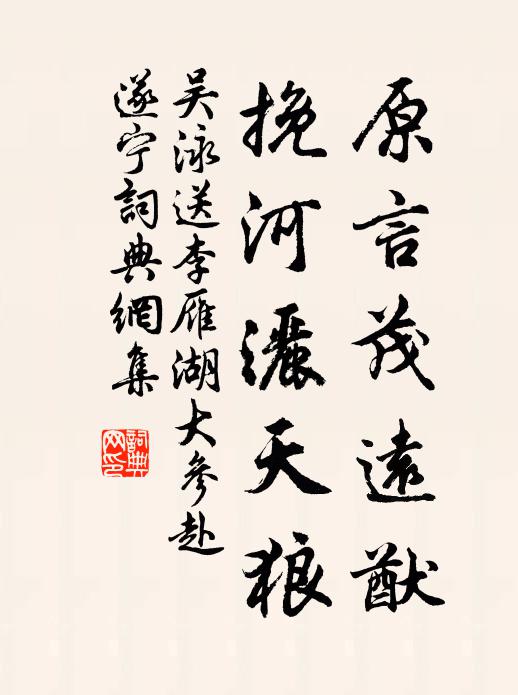 原言茂遠猷
挽河灑天狼
吴泳送李雁湖大參赴
遂宁詞典網集
詞典
网印